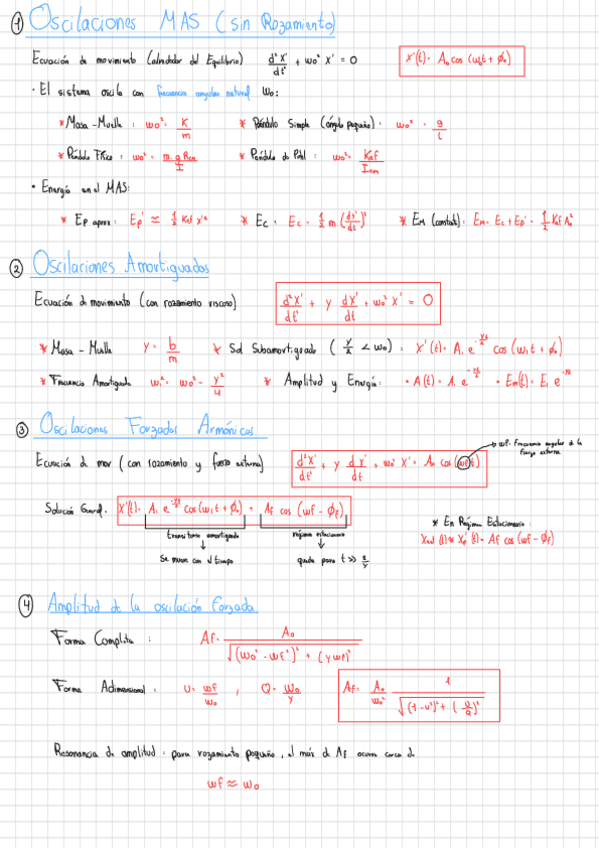 ① Oscilaciones MAS (sin Rozamiento)
Ecuación de movimiento (alrededor del Equilibrio) d²x'/dt² + ωo² x' = 0 x'(t) = Ao cos (ωot + ϕo)
· El sistema oscila con frecuencia angular natural ωo:
* Masa - Muelle : ωo² = K/m * Péndulo Simple (ángulo pequeño) : ωo² = g/l
* Péndulo Físico : ωo² = m.g Rcm/I * Péndulo de Pohl : ωo² = Kef/Icm
· Energía en el MAS:
* Ep aprox : Ep' ≈ 1/2 Kef x'² * Ec : Ec = 1/2 m (dx'/dt)² * EM (constante) : EM = Ec + Ep' = 1/2 Kef Ao²
② Oscilaciones Amortiguadas
Ecuación de movimiento (con rozamiento viscoso) d²x'/dt² + γ dx'/dt + ωo² x' = 0
* Masa - Muelle γ = b/m * Sol Subamortiguado (γ/2 < ωo) : x'(t) = A₁ e^-γt/2 cos (ω₁t + ϕo)
* Frecuencia Amortiguada ω₁² = ωo² - γ²/4 * Amplitud y Energía : · A(t) = A₁ e^-γt/2 · Em(t) = E₁ e^-γt
③ Oscilaciones Forzadas Armónicas
ωf: Frecuencia angular de la fuerza externa
Ecuación de mov (con rozamiento y fuerza externa) d²x'/dt² + γ dx'/dt + ωo² x' = Ao cos (ωft)
Solución General. x'(t) = A₁ e^-γt/2 cos (ω₁t + ϕo) + Af cos (ωf - ϕf)
transitorio amortiguado régimen estacionario
* En Régimen Estacionario:
Se mueve con el tiempo queda para t >> 2/γ
(t) ≈ (t) = Af cos (ωf - ϕf)
④ Amplitud de la oscilación Forzada
Forma Completa : Af = Ao/√((ωo² - ωf²)² + (γωf)²)
Forma Adimensional : U = ωf/ωo , Q = ωo/γ Af = Ao/ωo² 1/√((1-u²)² + (u/Q)²)
Resonancia de amplitud : para rozamiento pequeño, el máx de Af ocurre cerca de
ωf ≈ ωo